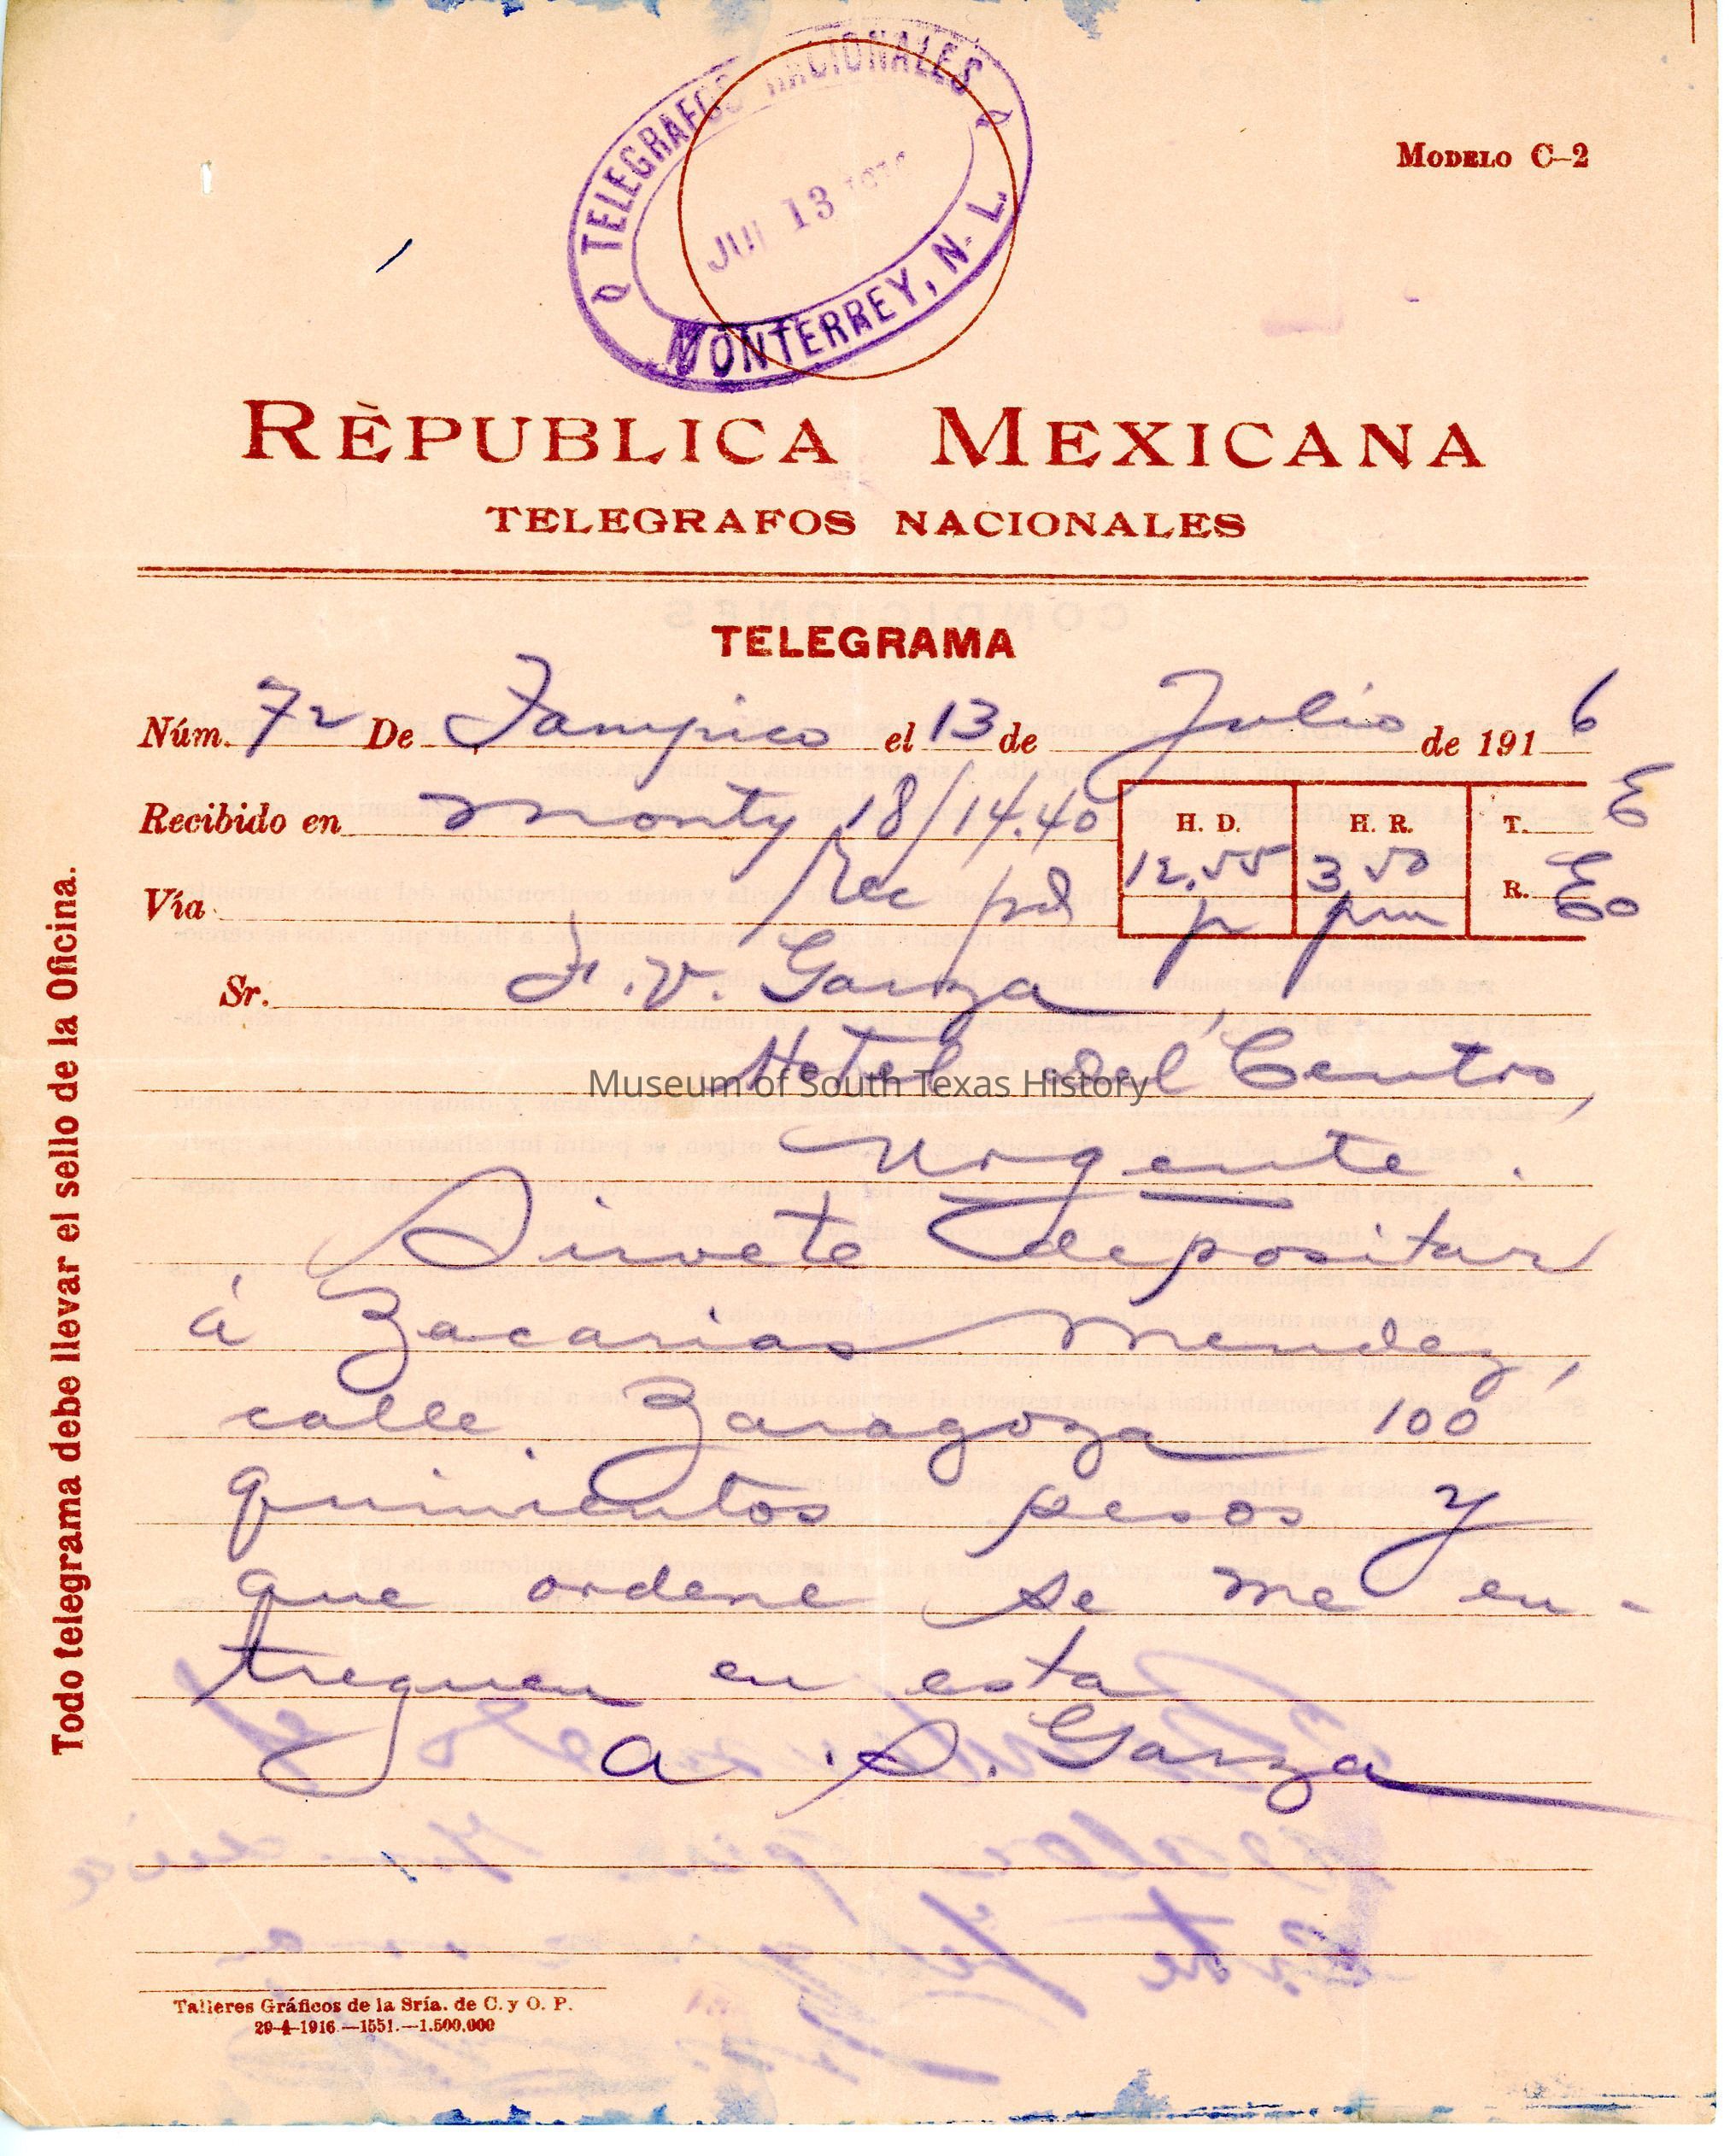 TELEGRAFOS NACIONALES
JUL 13 1916
MONTERREY, N. L.
MODELO C-2
RÈPUBLICA MEXICANA
TELEGRAFOS NACIONALES
TELEGRAMA
Núm. 72 De Tampico el 13 de Julio de 1916
Recibido en Monty 18/14.40
H. D. H. R. T. E
12.55 3 50
Vía Rec pd
p pm R. Eo
Sr. F. V. Garza,
Hotel del Centro,
Museum of South Texas History
Urgente.
Sirvete depositar
á Zacarias Mendez,
calle Zaragoza 100
quinientos pesos y
que ordene se me en-
treguen en esta
A. S. Garza
Todo telegrama debe llevar el sello de la Oficina.
Talleres Gráficos de la Sría. de C. y O. P.
29-4-1916.—1551.—1.500.000